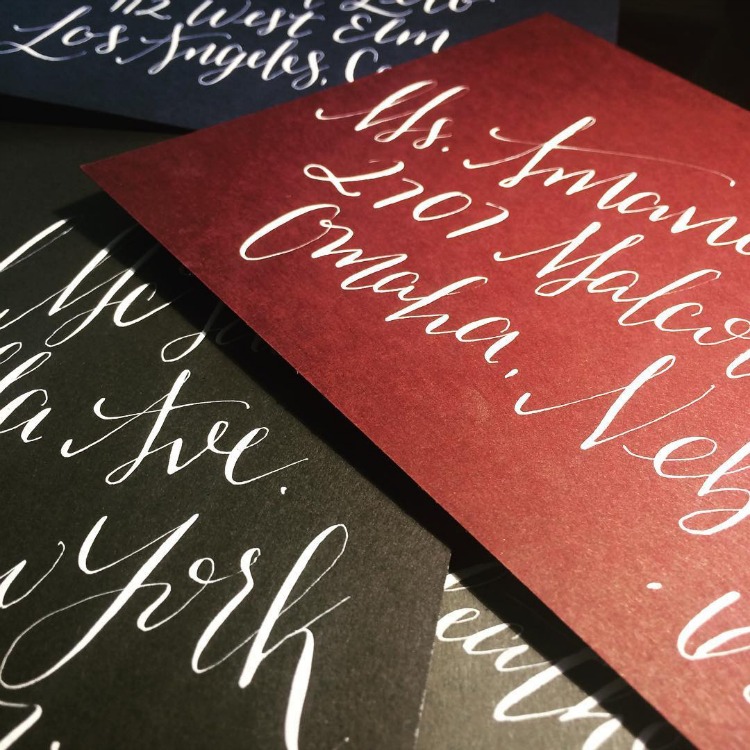 112 West Elm
Los Angeles, C
Ms. Aman
2707 Malco
Omaha, Neb
la Ave.
w York
eath